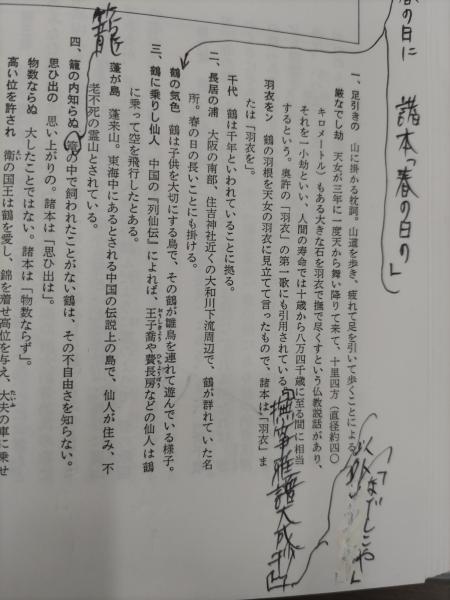 春の日に　諸本「春の日の」
一、足引きの　山に掛かる枕詞。山道を歩き、疲れて足を引いて歩くことによる。
厳なでし劫　天女が三年に一度天から舞い降りて来て、十里四方（直径約四〇
キロメートル）もある大きな石を羽衣で撫で尽くすという仏教説話があり、
それを一小劫といい、人間の寿命では十歳から八万四千歳に至る間に相当
するという。奥許の「羽衣」の第一歌にも引用されている。
羽衣をン　鶴の羽根を天女の羽衣に見立てて言ったもので、諸本は「羽衣」ま
たは「羽衣を」。
千代　鶴は千年といわれていることに拠る。
二、長居の浦　大阪の南部、住吉神社近くの大和川下流周辺で、鶴が群れていた名
所。春の日の長いことにも掛ける。
鶴の気色　鶴は子供を大切にする鳥で、その鶴が雛鳥を連れて遊んでいる様子。
三、鶴に乗りし仙人　中国の『列仙伝』によれば、王子喬や費長房などの仙人は鶴
に乗って空を飛行したとある。
蓬が島　蓬莱山。東海中にあるとされる中国の伝説上の島で、仙人が住み、不
老不死の霊山とされている。
籠
四、籠の内知らぬ　篭の中で飼われたことがない鶴は、その不自由さを知らない。
思ひ出の　思い上がりの。諸本は「思ひ出は」。
物数ならぬ　大したことではない。諸本は「物数ならず」。
高い位を許され　衛の国王は鶴を愛し、錦を着せ高位を与え、大夫の車に乗せ